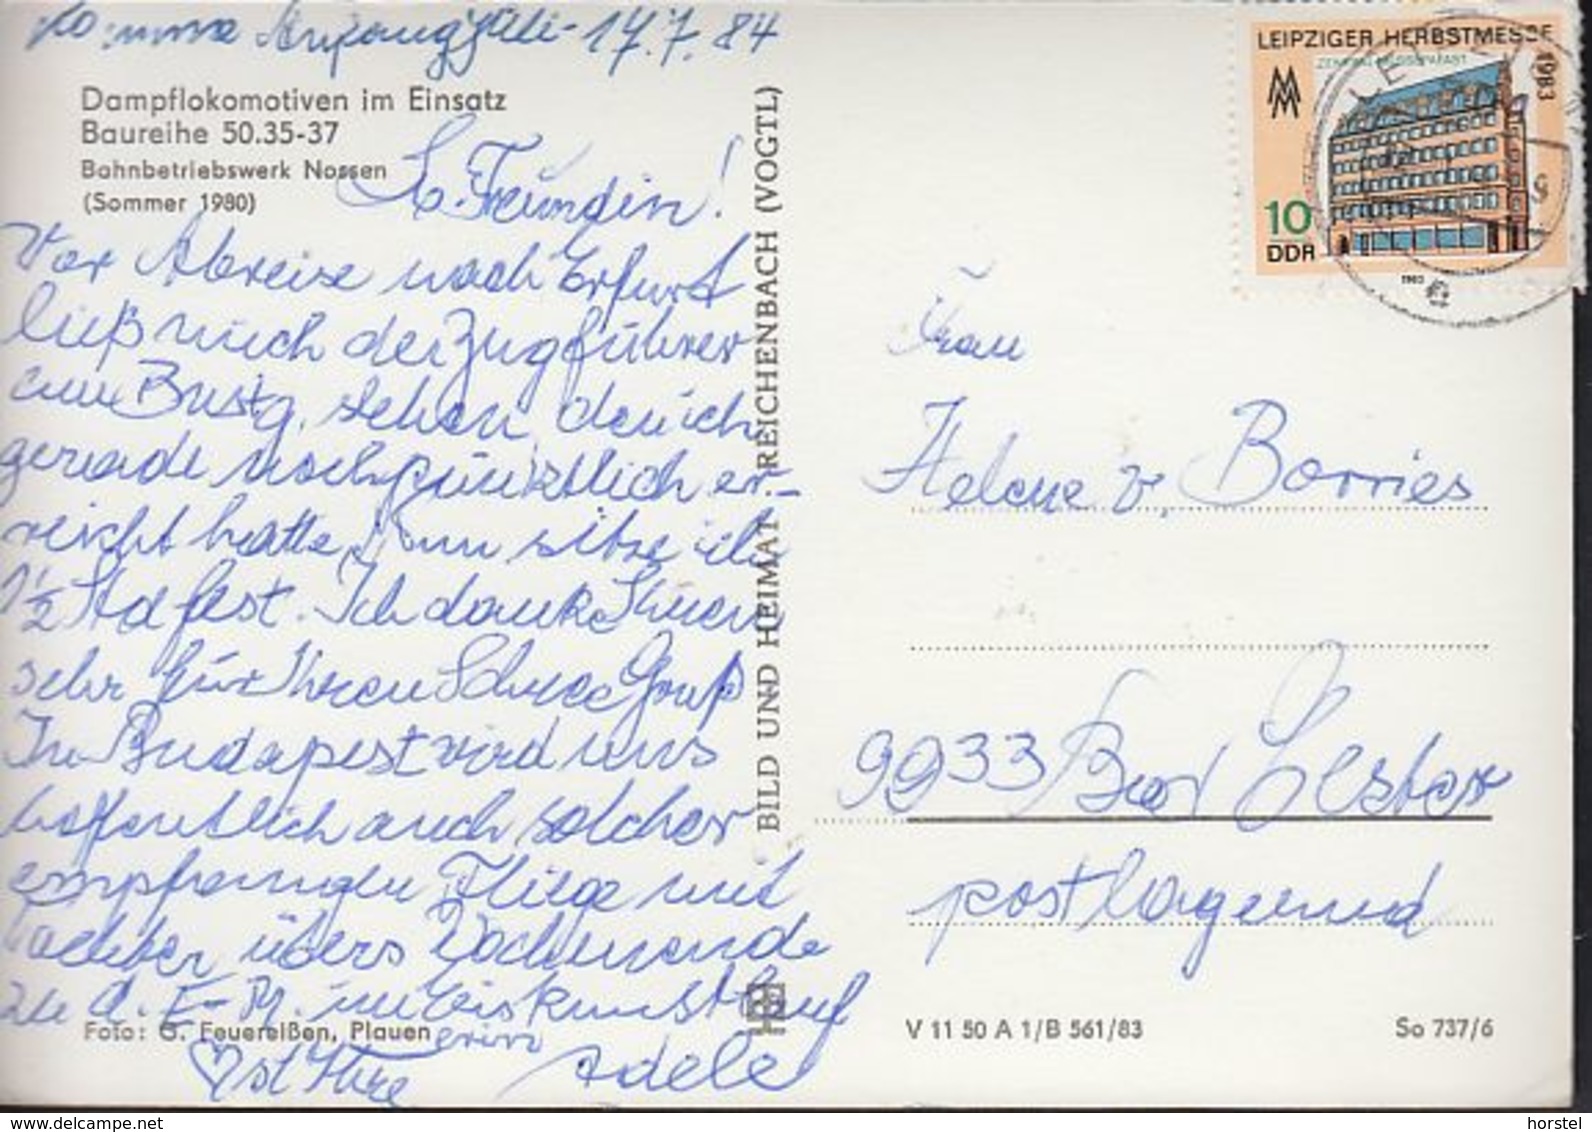 Komme Anfang Juli - 17.7.84
Dampflokomotiven im Einsatz
Baureihe 50.35-37
Bahnbetriebswerk Nossen
(Sommer 1980)
L. Freundin!
Vor Abreise nach Erfurt
ließ mich der Zugführer
am Bstg. sehen, den ich
gerade noch pünktlich er-
reicht hatte. Nun sitze ich
1½ Std fest. Ich danke Ihnen
sehr für Ihren Gruß
In Budapest wird uns
hoffentlich auch solcher
empfangen. Fliege mit
Tochter übers Wochenende
zu d. E-M. im Eiskunstlauf
Ihre Adele
BILD UND HEIMAT REICHENBACH (VOGTL)
Foto: G. Feuereißen, Plauen
LEIPZIGER HERBSTMESSE
1983
MM
10
DDR
1983
Frau
Helene v. Borries
9933 Bad Elster
postlagernd
V 11 50 A 1/B 561/83
So 737/6
www.delcampe.net
horstel